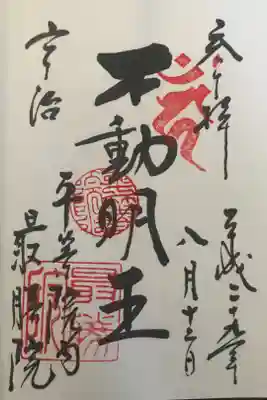 奉拝
平成二十九年
八月十三日
不動明王
宇治
平等院内
最勝院